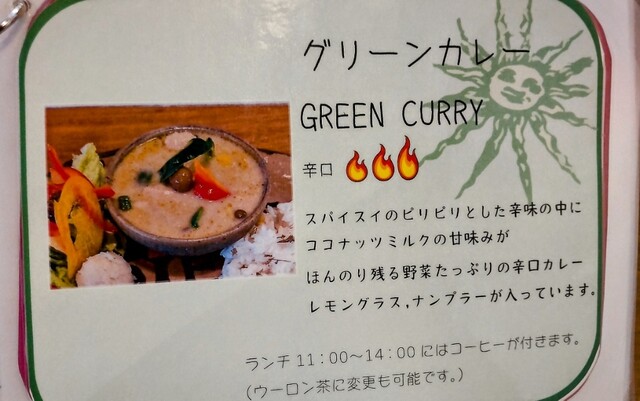 グリーンカレー
GREEN CURRY
辛口
スパイスイのピリピリとした辛味の中に
ココナッツミルクの甘味みが
ほんのり残る野菜たっぷりの辛口カレー
レモングラス,ナンプラーが入っています。
ランチ11:00～14:00にはコーヒーが付きます。
(ウーロン茶に変更も可能です。)